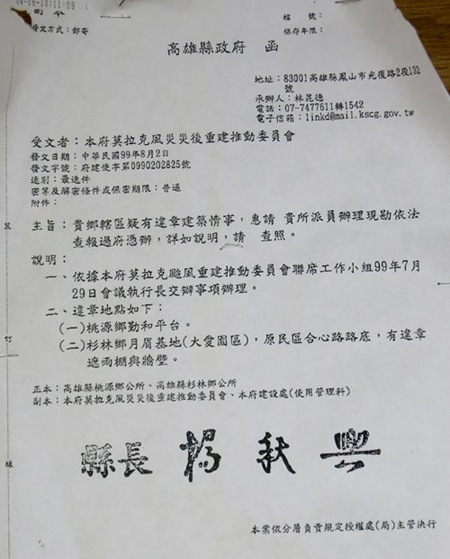 副本
發文方式：郵寄
檔　號：
保存年限：
高雄縣政府　函
地址：83001高雄縣鳳山市光復路2段132
號
承辦人：林昆德
電話：07-7477611轉1542
電子信箱：linkd@mail.kscg.gov.tw
受文者：本府莫拉克風災災後重建推動委員會
發文日期：中華民國99年8月2日
發文字號：府建使字第0990202825號
速別：最速件
密等及解密條件或保密期限：普通
附件：
主旨：貴鄉轄區疑有違章建築情事，惠請　貴所派員辦理現勘依法
查報過府憑辦，詳如說明，請　查照。
說明：
一、依據本府莫拉克颱風重建推動委員會聯席工作小組99年7月
29日會議執行長交辦事項辦理。
二、違章地點如下：
(一)桃源鄉勤和平台。
(二)杉林鄉月眉基地(大愛園區)，原民區合心路路底，有違章
遮雨棚與牆壁。
正本：高雄縣桃源鄉公所、高雄縣杉林鄉公所
副本：本府莫拉克風災災後重建推動委員會、本府建設處(使用管理科)
縣長 楊秋興
本案依分層負責規定授權處(局)主管決行
裝
訂
線